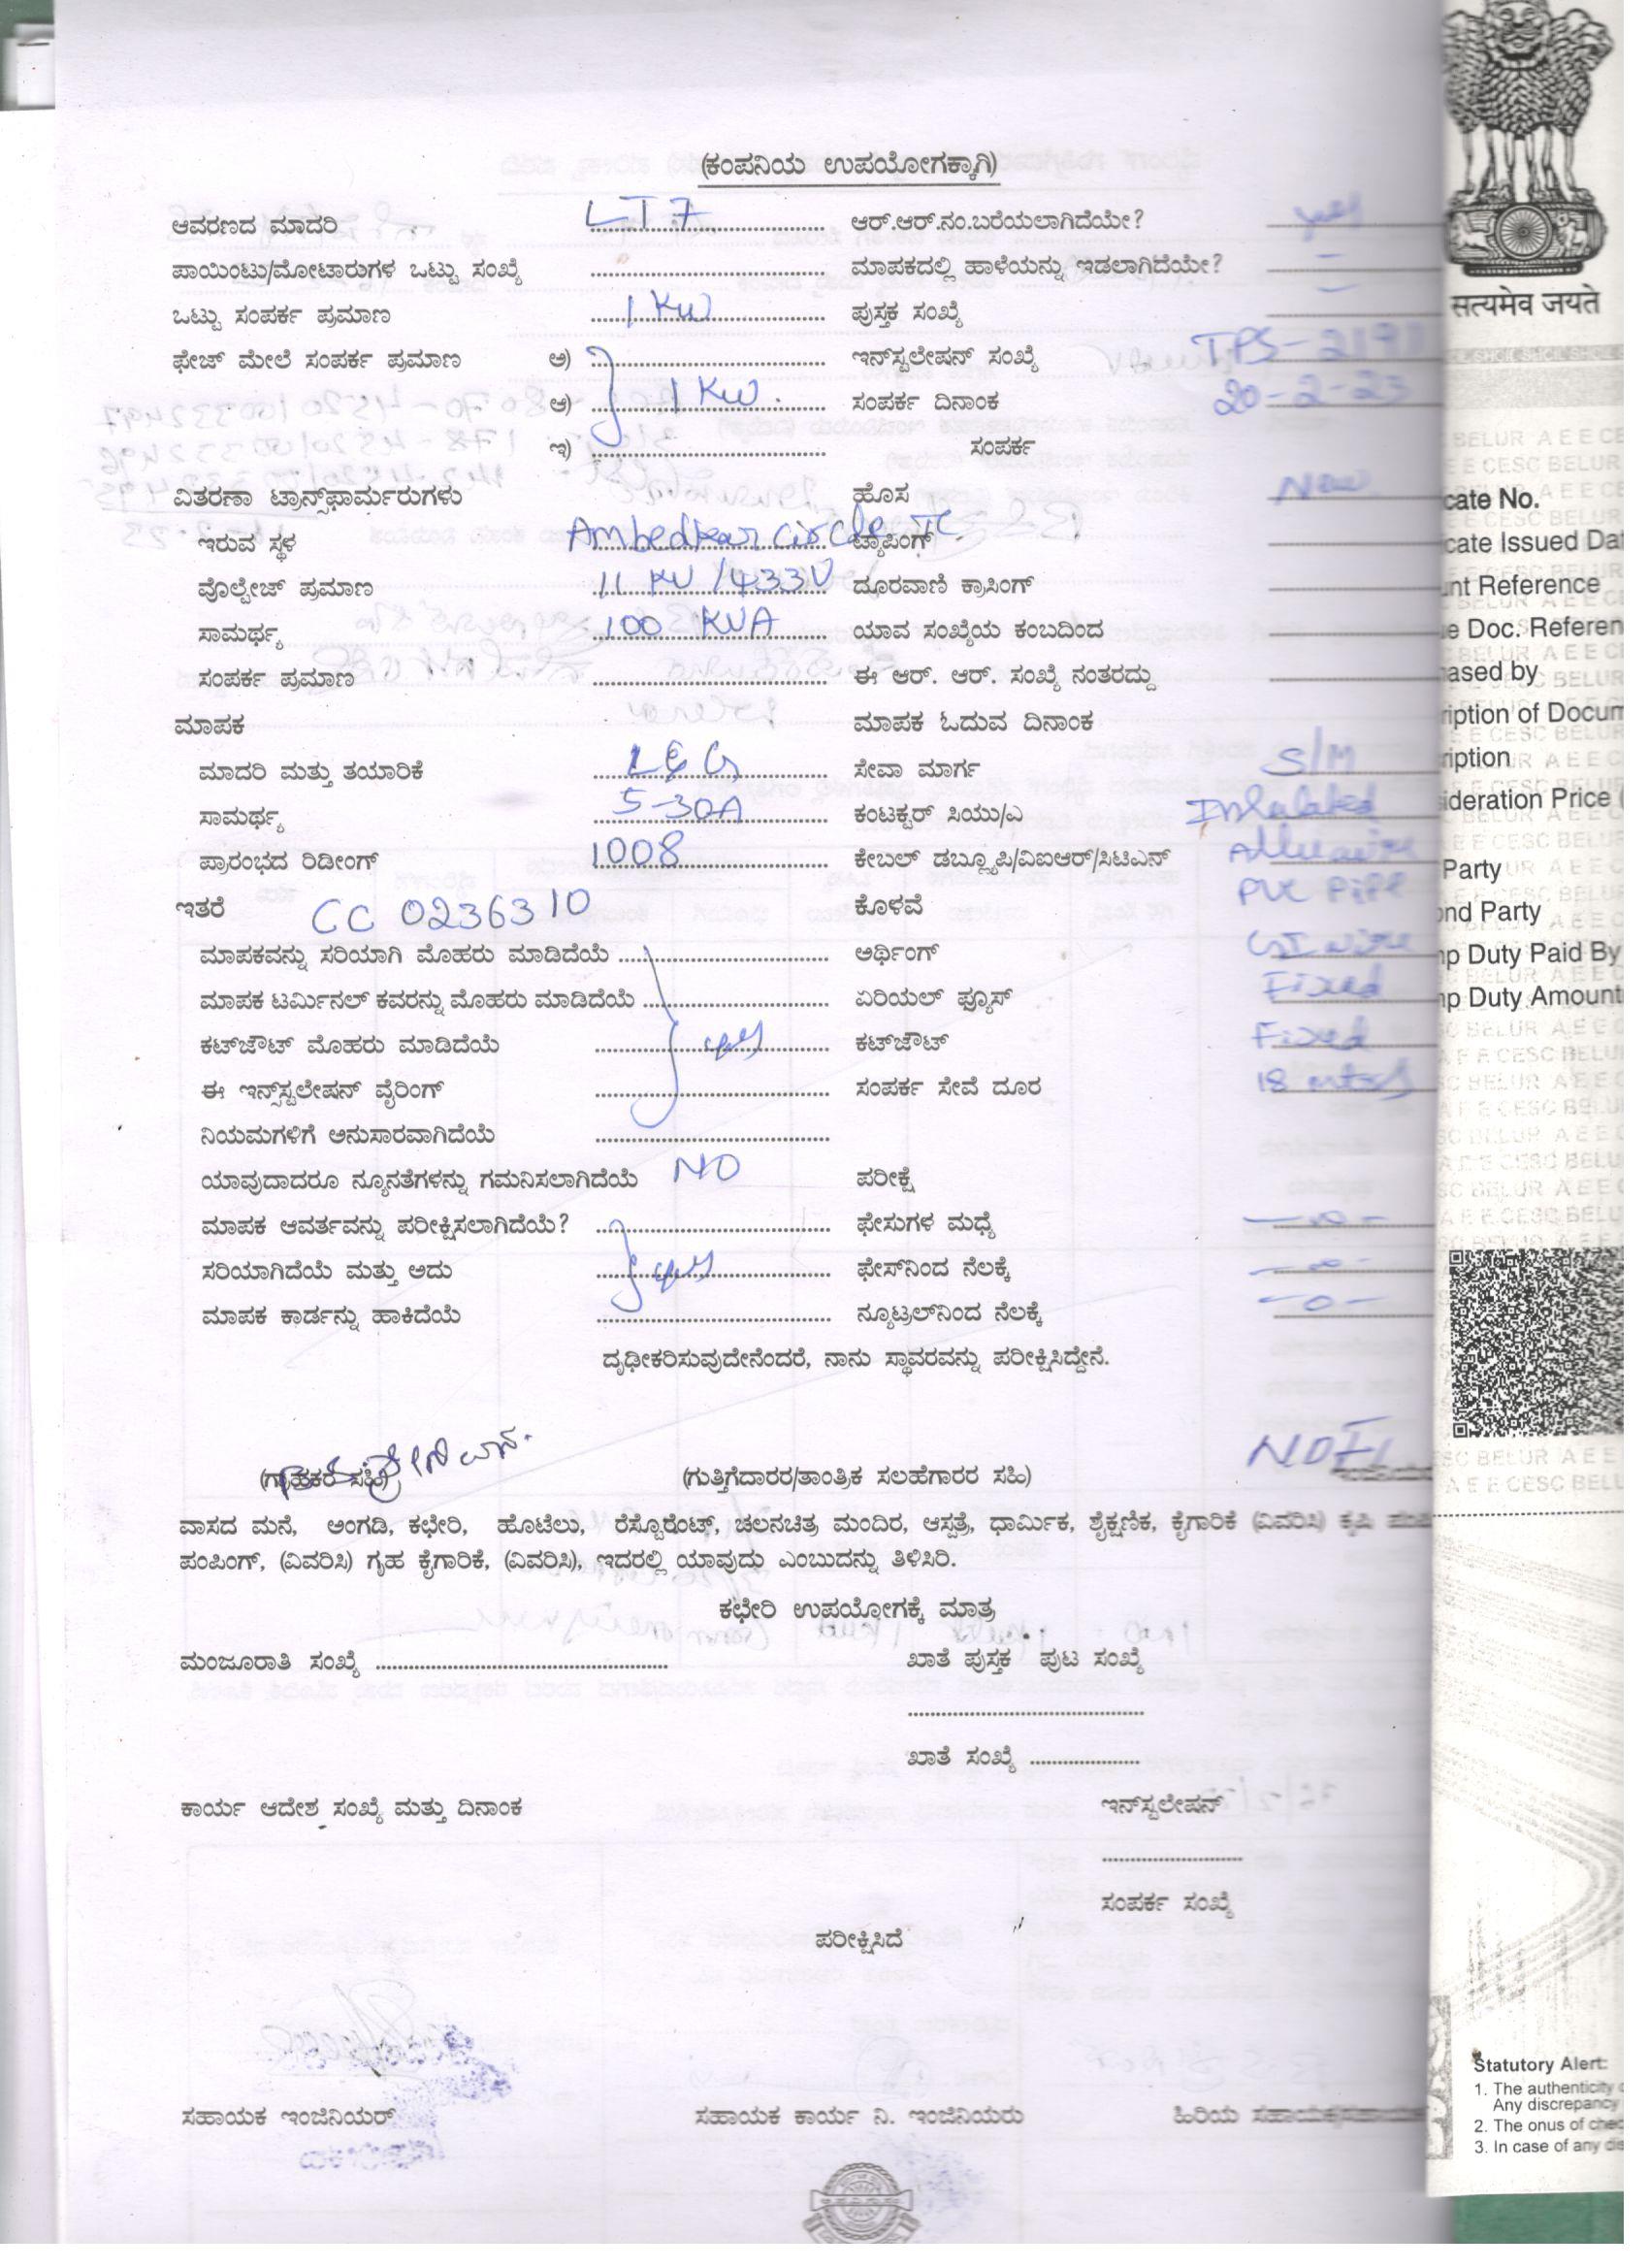 (ಕಂಪನಿಯ ಉಪಯೋಗಕ್ಕಾಗಿ)
ಆವರಣದ ಮಾದರಿ LT7 ಆರ್.ಆರ್.ನಂ.ಬರೆಯಲಾಗಿದೆಯೇ? yes
ಪಾಯಿಂಟು/ಮೋಟಾರುಗಳ ಒಟ್ಟು ಸಂಖ್ಯೆ ಮಾಪಕದಲ್ಲಿ ಹಾಳೆಯನ್ನು ಇಡಲಾಗಿದೆಯೇ? –
ಒಟ್ಟು ಸಂಪರ್ಕ ಪ್ರಮಾಣ 1 KW ಪುಸ್ತಕ ಸಂಖ್ಯೆ –
ಫೇಜ್ ಮೇಲೆ ಸಂಪರ್ಕ ಪ್ರಮಾಣ ಅ) ಇನ್‌ಸ್ಟಲೇಷನ್ ಸಂಖ್ಯೆ TPS-2191
ಆ) 1 KW. ಸಂಪರ್ಕ ದಿನಾಂಕ 20-2-23
ಇ) ಸಂಪರ್ಕ
ವಿತರಣಾ ಟ್ರಾನ್ಸ್‌ಫಾರ್ಮರುಗಳು ಹೊಸ New
ಇರುವ ಸ್ಥಳ Ambedkar circle TC ಟ್ಯಾಪಿಂಗ್
ವೊಲ್ಟೇಜ್ ಪ್ರಮಾಣ 11 KV /433V ದೂರವಾಣಿ ಕ್ರಾಸಿಂಗ್
ಸಾಮರ್ಥ್ಯ 100 KVA ಯಾವ ಸಂಖ್ಯೆಯ ಕಂಬದಿಂದ
ಸಂಪರ್ಕ ಪ್ರಮಾಣ ಈ ಆರ್. ಆರ್. ಸಂಖ್ಯೆ ನಂತರದ್ದು
ಮಾಪಕ ಮಾಪಕ ಓದುವ ದಿನಾಂಕ
ಮಾದರಿ ಮತ್ತು ತಯಾರಿಕೆ L&G ಸೇವಾ ಮಾರ್ಗ S/M
ಸಾಮರ್ಥ್ಯ 5-30A ಕಂಟಕ್ಟರ್ ಸಿಯು/ಎ
ಪ್ರಾರಂಭದ ರಿಡೀಂಗ್ 1008 ಕೇಬಲ್ ಡಬ್ಲ್ಯೂಪಿ/ವಿಐಆರ್/ಸಿಟಿಎನ್
ಇತರೆ CC 0236310 ಕೊಳವೆ PVC PIPE
ಮಾಪಕವನ್ನು ಸರಿಯಾಗಿ ಮೊಹರು ಮಾಡಿದೆಯೆ ಅರ್ಥಿಂಗ್ GI wire
ಮಾಪಕ ಟರ್ಮಿನಲ್ ಕವರನ್ನು ಮೊಹರು ಮಾಡಿದೆಯೆ ಏರಿಯಲ್ ಫ್ಯೂಸ್ Fixed
ಕಟ್‌ಔಟ್ ಮೊಹರು ಮಾಡಿದೆಯೆ yes ಕಟ್‌ಔಟ್ Fixed
ಈ ಇನ್ಸ್‌ಸ್ಟಲೇಷನ್ ವೈರಿಂಗ್ ಸಂಪರ್ಕ ಸೇವೆ ದೂರ 18 mtrs
ನಿಯಮಗಳಿಗೆ ಅನುಸಾರವಾಗಿದೆಯೆ
ಯಾವುದಾದರೂ ನ್ಯೂನತೆಗಳನ್ನು ಗಮನಿಸಲಾಗಿದೆಯೆ NO ಪರೀಕ್ಷೆ
ಮಾಪಕ ಆವರ್ತವನ್ನು ಪರೀಕ್ಷಿಸಲಾಗಿದೆಯೆ? ಫೇಸುಗಳ ಮಧ್ಯೆ – ∞ –
ಸರಿಯಾಗಿದೆಯೆ ಮತ್ತು ಅದು yes ಫೇಸ್‌ನಿಂದ ನೆಲಕ್ಕೆ – ∞ –
ಮಾಪಕ ಕಾರ್ಡನ್ನು ಹಾಕಿದೆಯೆ ನ್ಯೂಟ್ರಲ್‌ನಿಂದ ನೆಲಕ್ಕೆ – 0 –
ದೃಢೀಕರಿಸುವುದೇನೆಂದರೆ, ನಾನು ಸ್ಥಾವರವನ್ನು ಪರೀಕ್ಷಿಸಿದ್ದೇನೆ.
(ಗ್ರಾಹಕರ ಸಹಿ) (ಗುತ್ತಿಗೆದಾರರ/ತಾಂತ್ರಿಕ ಸಲಹೆಗಾರರ ಸಹಿ)
ವಾಸದ ಮನೆ, ಅಂಗಡಿ, ಕಛೇರಿ, ಹೊಟೆಲು, ರೆಸ್ಟೊರೆಂಟ್, ಚಲನಚಿತ್ರ ಮಂದಿರ, ಆಸ್ಪತ್ರೆ, ಧಾರ್ಮಿಕ, ಶೈಕ್ಷಣಿಕ, ಕೈಗಾರಿಕೆ (ವಿವರಿಸಿ) ಕೃಷಿ
ಪಂಪಿಂಗ್, (ವಿವರಿಸಿ) ಗೃಹ ಕೈಗಾರಿಕೆ, (ವಿವರಿಸಿ), ಇದರಲ್ಲಿ ಯಾವುದು ಎಂಬುದನ್ನು ತಿಳಿಸಿರಿ.
ಕಛೇರಿ ಉಪಯೋಗಕ್ಕೆ ಮಾತ್ರ
ಮಂಜೂರಾತಿ ಸಂಖ್ಯೆ ಖಾತೆ ಪುಸ್ತಕ ಪುಟ ಸಂಖ್ಯೆ
ಖಾತೆ ಸಂಖ್ಯೆ
ಕಾರ್ಯ ಆದೇಶ ಸಂಖ್ಯೆ ಮತ್ತು ದಿನಾಂಕ ಇನ್‌ಸ್ಟಲೇಷನ್
ಸಂಪರ್ಕ ಸಂಖ್ಯೆ
ಪರೀಕ್ಷಿಸಿದೆ
ಸಹಾಯಕ ಇಂಜಿನಿಯರ್ ಸಹಾಯಕ ಕಾರ್ಯ ನಿ. ಇಂಜಿನಿಯರು ಹಿರಿಯ ಸಹಾಯಕ
सत्यमेव जयते
cate No.
cate Issued Dat
unt Reference
e Doc. Referen
ased by
ription of Docum
ription
ideration Price (
Party
ond Party
mp Duty Paid By
mp Duty Amount
Statutory Alert:
1. The authenticity
Any discrepancy
2. The onus of chec
3. In case of any dis